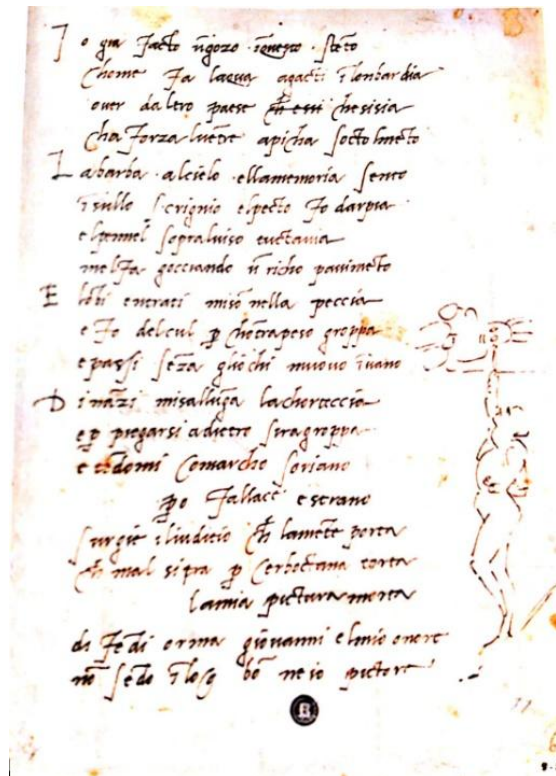 I o gia facto ũgozo ĩquesto stẽto
chome fa laqua agacti ĩ lonbardia
over daltro paese che essi chesisia
cha forza lventre apicha socto lmẽto
L abarba alcielo ellamemoria sento
ĩsullo scrignio elpecto fo darpia
elpennel sopraluiso tuctavia
melfa gocciando ũ richo pavimẽto
E lobi entrati miso nella peccia
e fo delcul p chõtrapeso groppa
epassi sẽza gliochi muovo ĩvano
D inãzi misallũga lachorteccia
e p piegarsi adietro siragroppa
e tẽdomi comarcho soriano
po fallace e strano
surgie iliuditio che lamẽte porta
che mal sipra p cerboctana torta
lamia pictura morta
difẽdi orma giovanni elmio onore
nõ sẽdo ĩ loco bõ ne io pictore
B